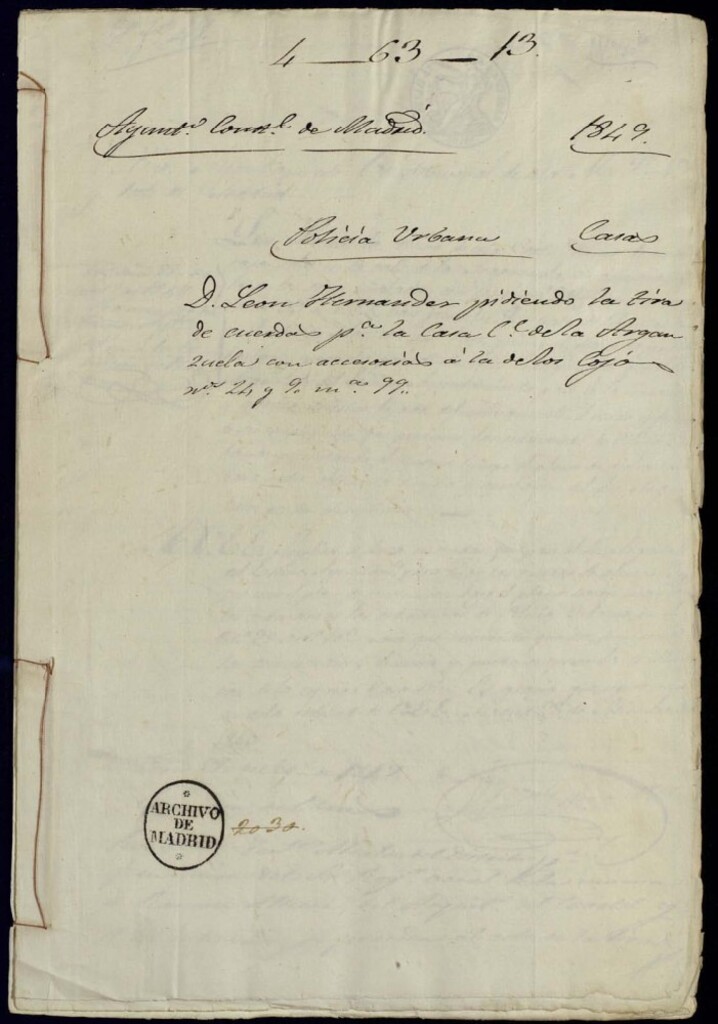 4 — 63 — 13.
Ayunt.º Const.l de Madrid. 1849.
Policía Urbana Casas
D. Leon Hernandez pidiendo la tira
de cuerdas p.ª la Casa C.e de la Argan
zuela con accesorias á la de los Cojos
n.os 24 y 9. m.a 99.
ARCHIVO
DE
MADRID
2030.